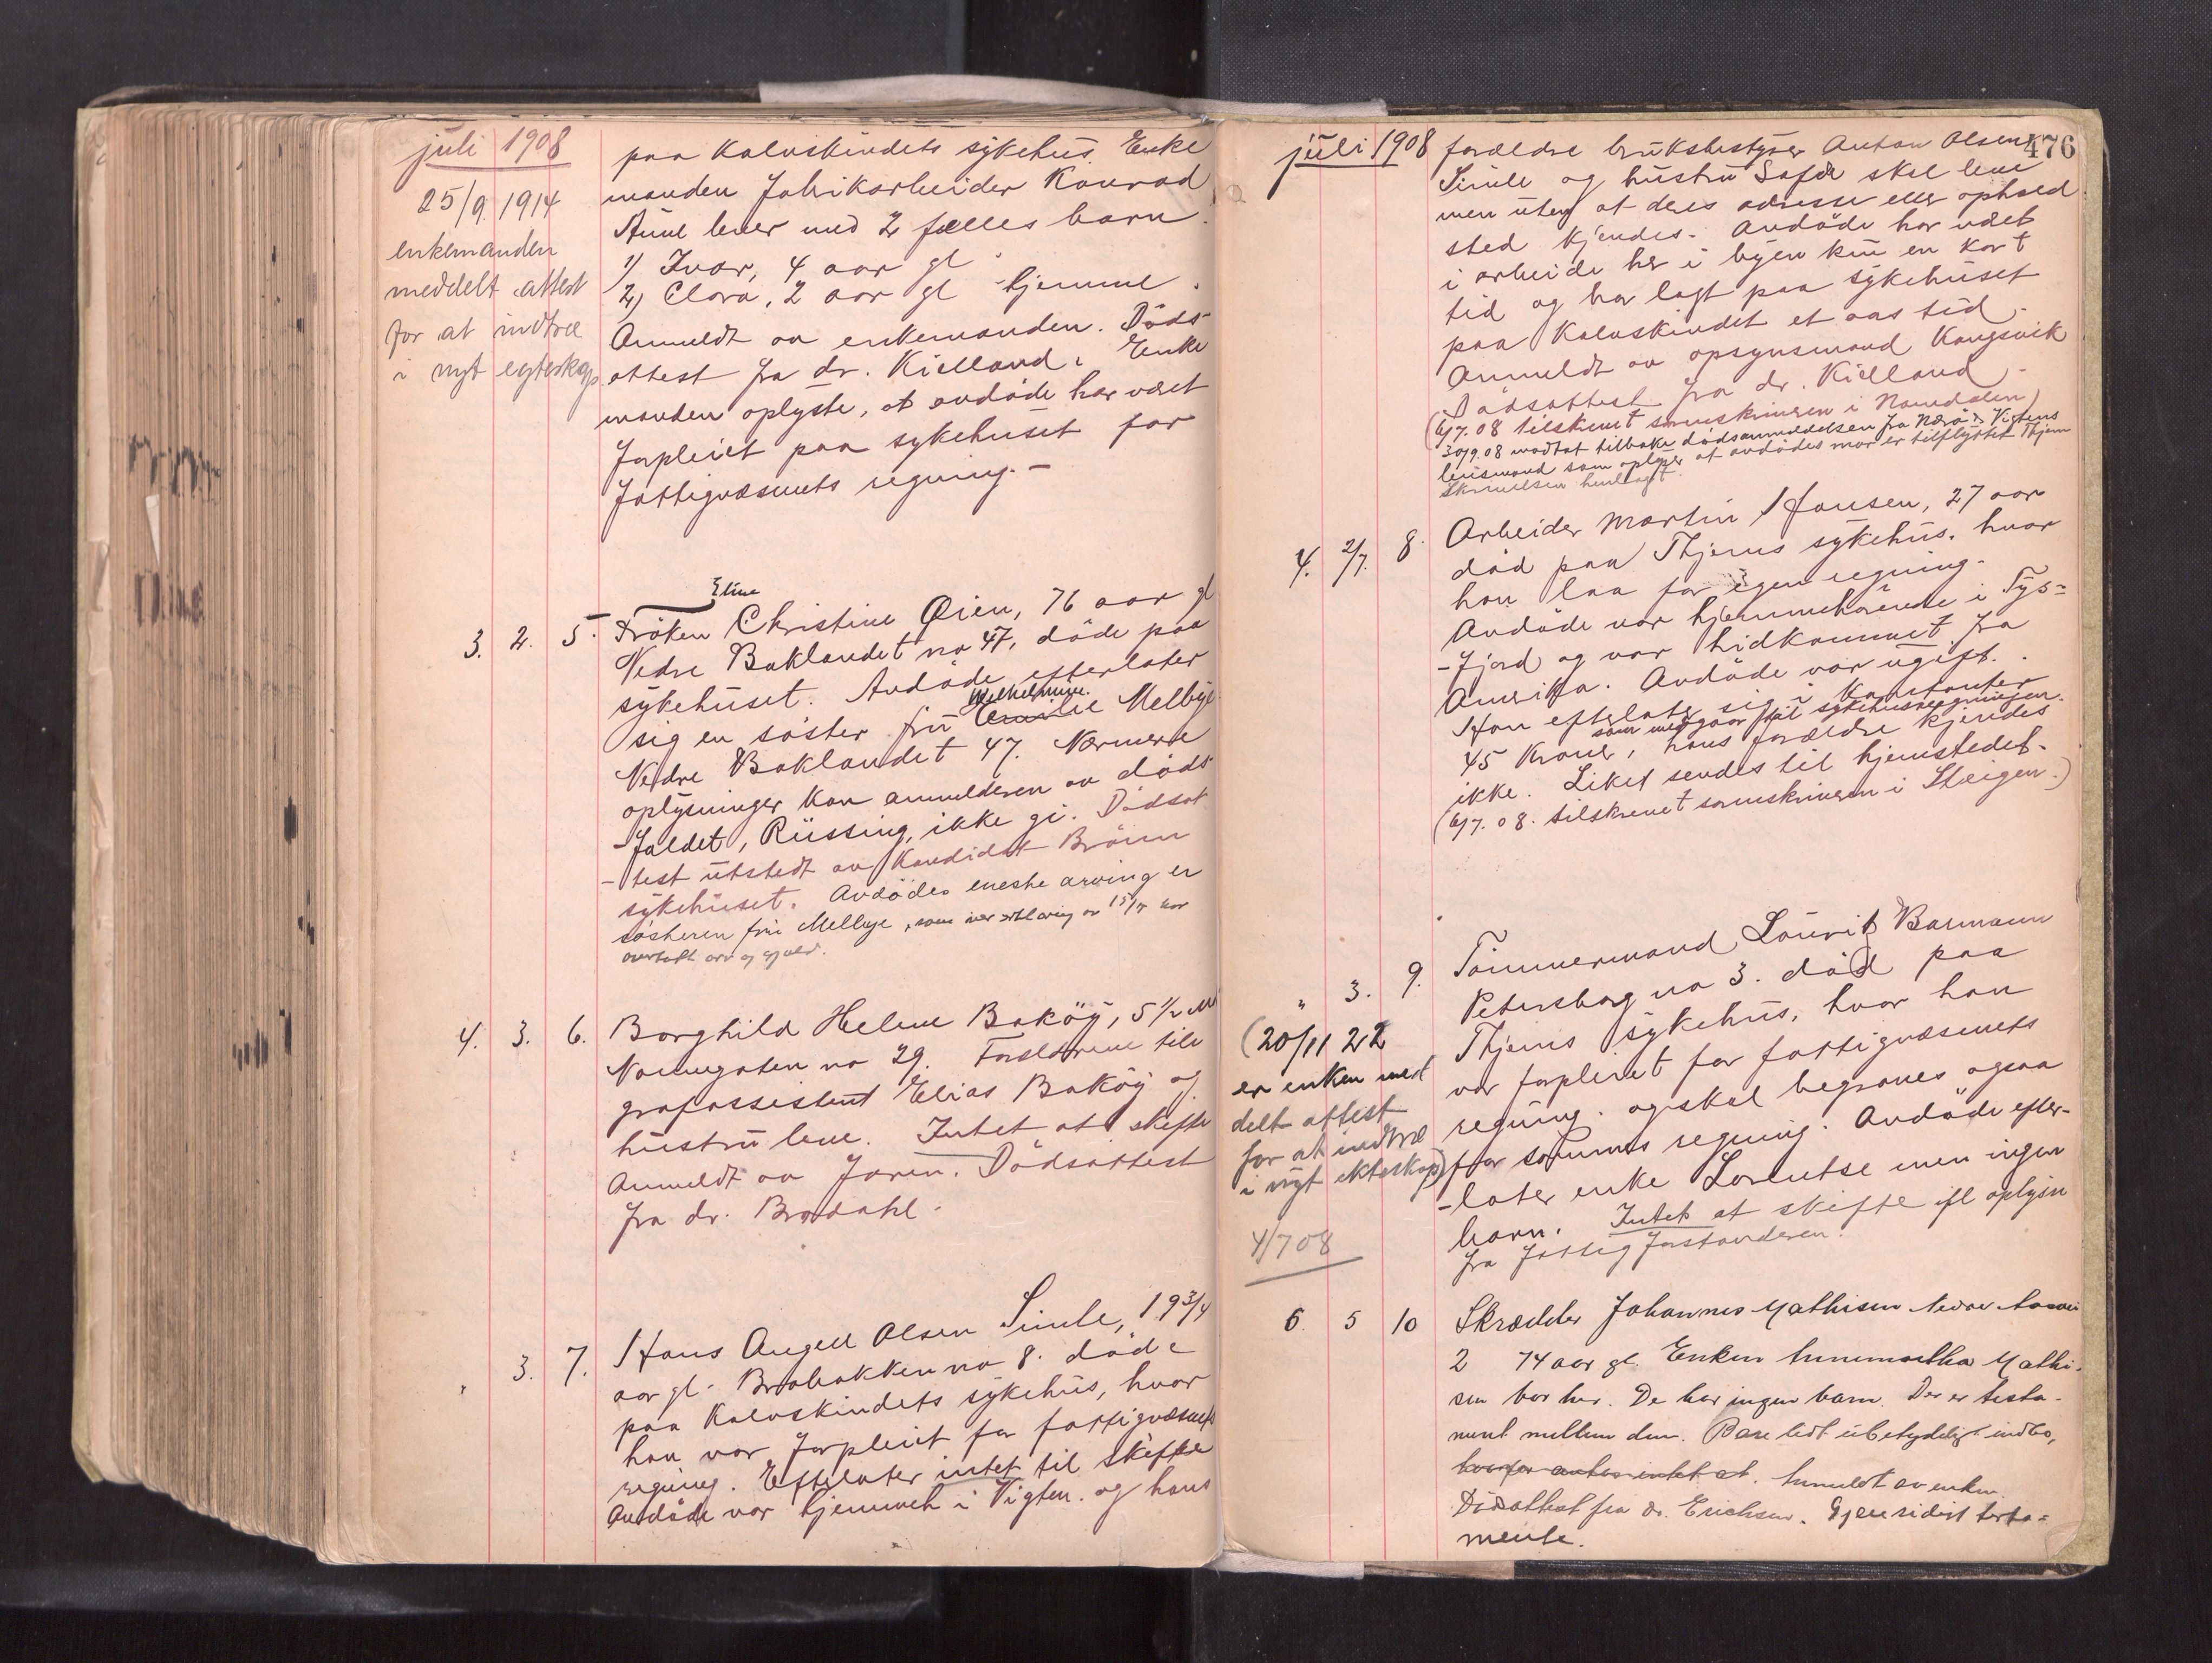 juli 1908
25/9 1914
enkemanden
meddelt attest
for at indtræ
i nyt egteskap.
paa Kalvskindets sykehus. Enke
manden fabrikarbeider Konrad
Aune lever med 2 fælles barn.
1) Ivar, 4 aar gl.
2) Clara, 2 aar gl hjemme.
Anmeldt av enkemanden. Döds-
attest fra dr. Kielland. Enke
manden oplyste, at avdöde har været
forpleiet paa sykehuset for
fattigvæsenets regning.-
3. 2. 5.
Eline
Fröken Christine Øien, 76 aar gl
Nedre Baklandet no 47, döde paa
sykehuset. Avdöde efterlater
Wilhelmine.
sig en söster fru Emilie Melbye
Nedre Baklandet 47. Nærmere
oplysninger kan anmelderen av döds-
-faldet, Rüssing, ikke gi. Dödsat
-test utstedt av Kandidat Brönn
sykehuset. Avdödes eneste arving er
sösteren fru Melbye, som iver erklæring av 15/7 har
overtatt arv og gjæld.
4. 3. 6.
Borghild Helene Baköy, 5 1/2 M
Nonnegaten no 29. Forældrene tele
grafassistent Elias Baköy og
hustru leve. Intet at skifte
Anmeldt av faren. Dödsattest
fra dr. Bradahl.
" 3. 7.
Hans Angell Olsen Simle, 19 3/4
aar gl. Brobakken no 8. död
paa Kalvskindets sykehus, hvor
han var forpleiet for fattigvæsenets
regning. Efterlater intet til skifte
Avdöde var hjemmeh i Vigten. og hans
juli 1908
476
forældre bruksbestyrer Anton Olsen
Simle og hustru Sofie skal leve
men uten at deres adresse eller ophold
sted kjendes. Avdöde har været
i arbeide her i byen kun en kort
tid og har lagt paa sykehuset
paa Kalvskindet et aas tid.
Anmeldt av opsynsmand Kangsvik
Dödsattest fra dr. Kielland.
(6/7. 08 tilskrevet sorenskriveren i Namdalen)
30/9.08 modtat tilbake dödsanmeldelsen fra Nærö & Vigtens
lensmand som oplyser at avdödes mor er tilflyttet Thjem
Skrivelsen henlagt.
4. 2/7. 8.
Arbeider Martin Hansen, 27 aar
död paa Thjems sykehus, hvor
han laa for egen regning.
Avdöde var hjemmehörende i Tys=
-fjord og var hidkommet fra
Amerika. Avdöde var ugift.
Han efterlater sig i Kontanter
som medgaar til sykehusregningen.
45 Kroner, hans forældre kjendes
ikke. Liket sendes til hjemstedet.
(6/7. 08. tilskrevet sorenskriveren i Steigen.)
" 3. 9.
(20/11 22
er enken med
delt attest
for at indtræ
i nyt ekteskap)
4/7 08
Tömmermand Lauritz Barmann
Petersborg no 3. död paa
Thjems sykehus, hvor han
var forpleiet for fattigvæsenets
regning. og skal begraves ogsaa
for sammes regning. Avdöde efter-
-later enke Lorentse men ingen
barn. Intet at skifte ifl oplysn
fra fattigforstanderen.
6. 5 10
Skrædder Johannes Mathisen Nedre
2 74 aar gl. Enken Annemartha Mathi-
sen bor her. De har ingen barn. Der er testa-
ment mellem dem. Bare lidt ubetydeligt indbo,
hvorfor antas intet at. Anmeldt av enken.
Dödsattest fra Dr. Erichsen. Gjensidigt testa=
mente.